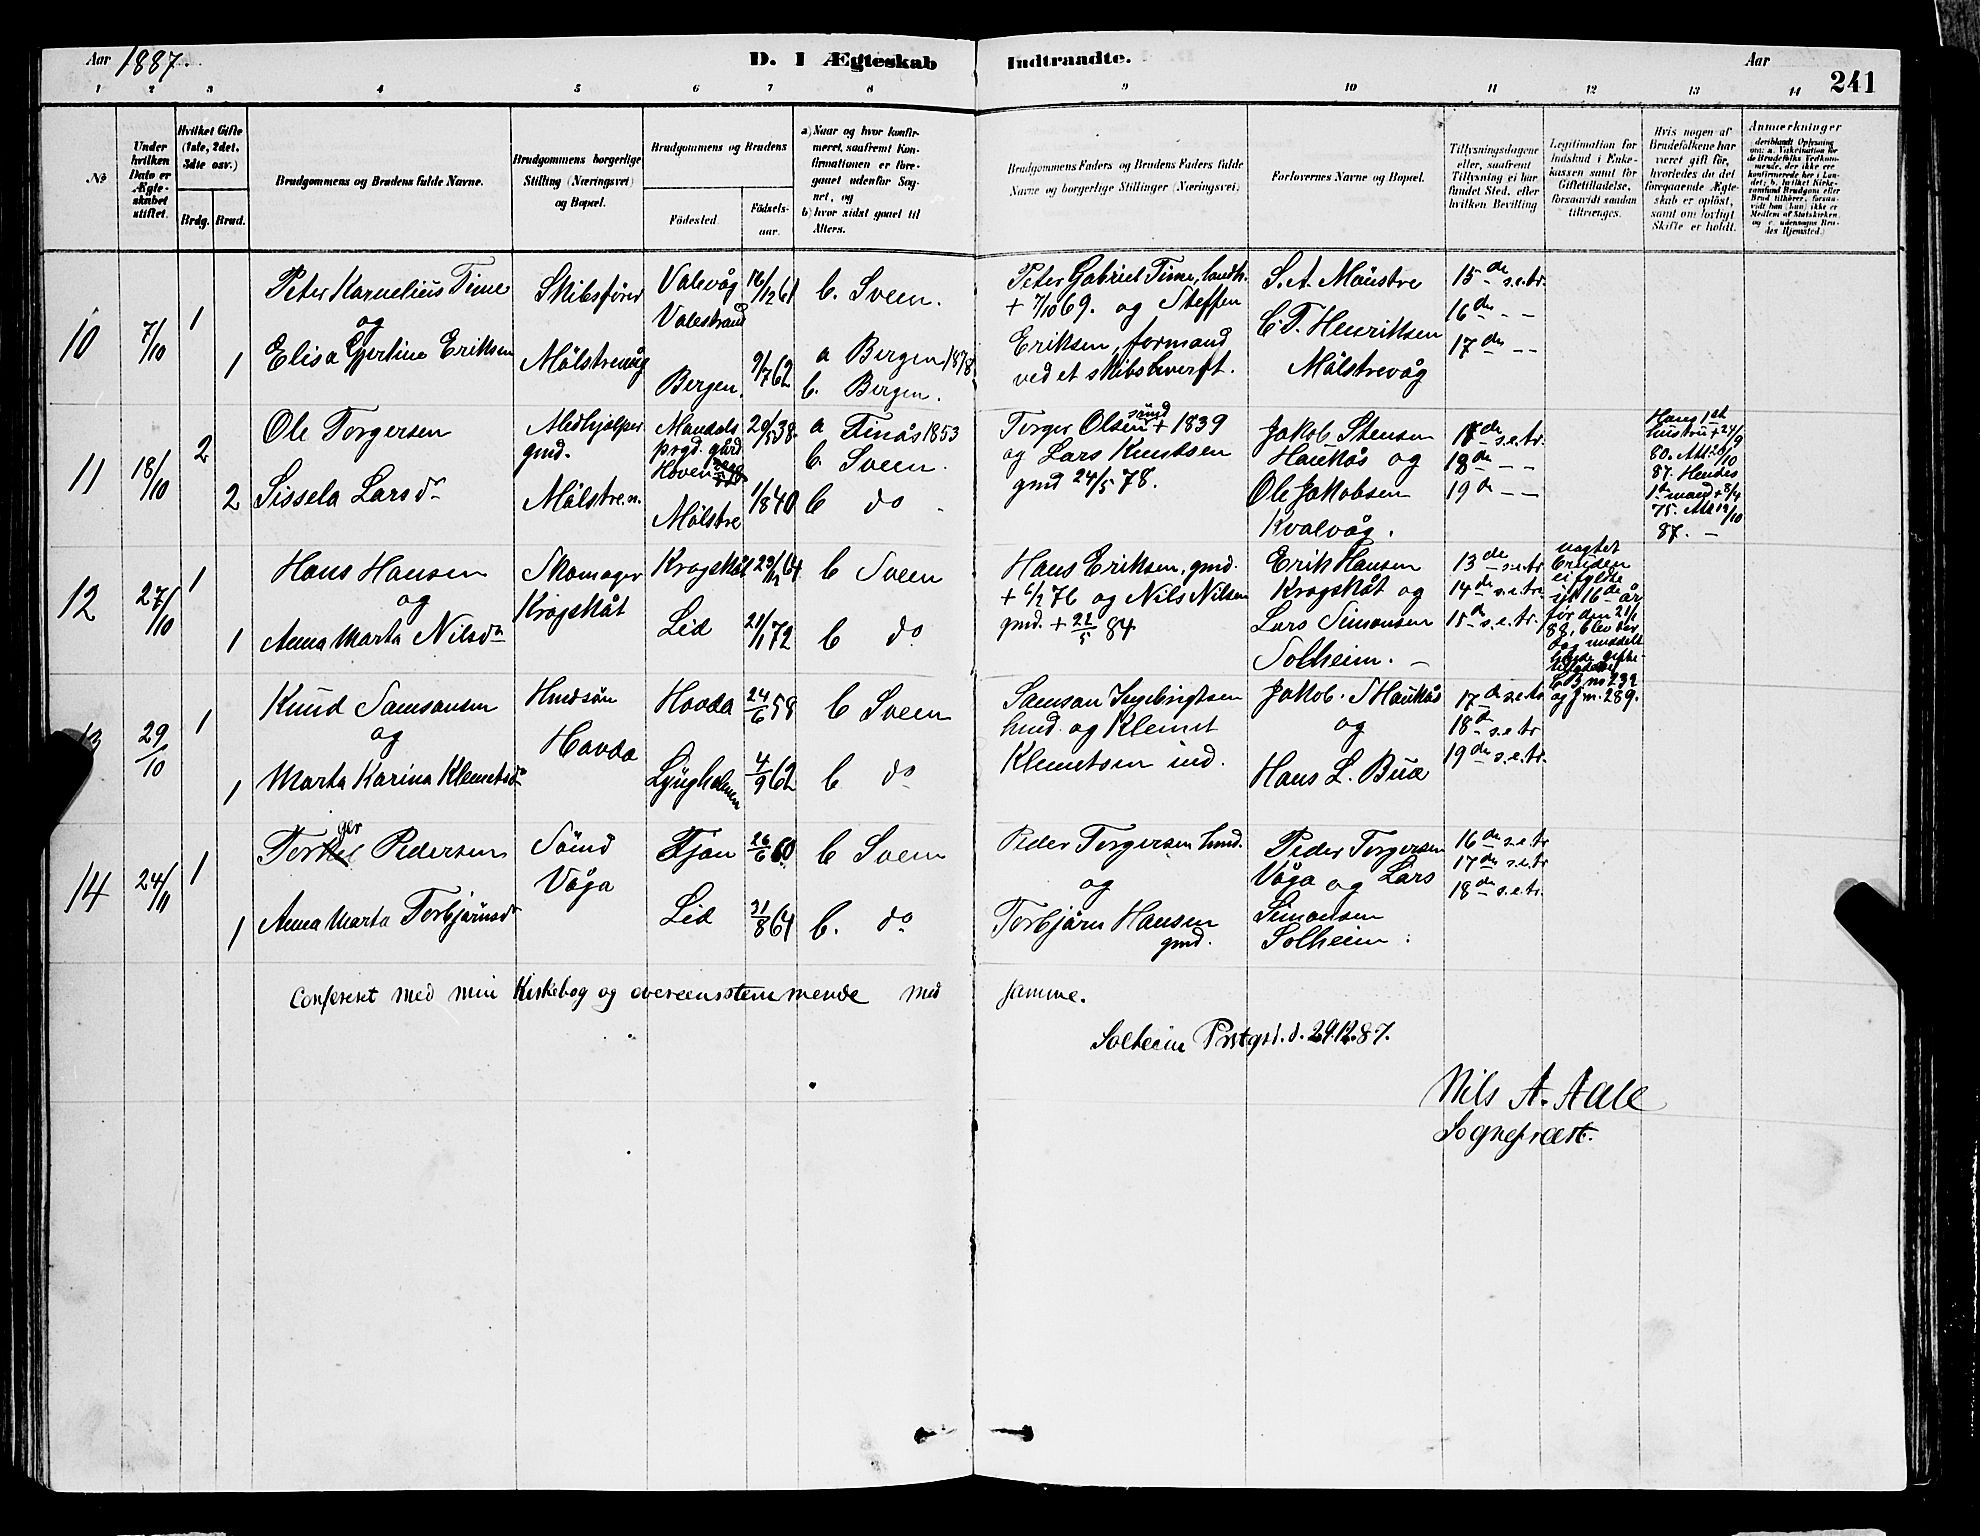 Aar 1887.
D. I Ægteskab Indtraadte.
Aar
241
1 2 3 4 5 6 7 8 9 10 11 12 13 14
No
Under hvilken Dato er Ægteskabet stiftet.
Hvilket Gifte (1ste, 2det, 3die osv.)
Brdg. Brud.
Brudgommens og Brudens fulde Navne.
Brudgommens borgerlige Stilling (Næringsvei) og Bopæl.
Brudgommens og Brudens
Födested
Födsels-aar.
a) Naar og hvor konfirmeret, saafremt Konfirmationen er foregaaet udenfor Sognet, og
b) hvor sidst gaaet til Alters.
Brudgommens Faders og Brudens Faders fulde Navne og borgerlige Stillinger (Næringsvei)
Forlovernes Navne og Bopæl.
Tillysningsdagene eller, saafremt Tillysning ei har fundet Sted, efter hvilken Bevilling
Legitimation for Indskud i Enkekassen samt for Giftetilladelse, forsaavidt saadan tiltrænges.
Hvis nogen af Brudefolkene har været gift för, hvorledes da det foregaaende Ægteskab er oplöst, samt om lovligt Skifte er holdt.
Anmærkninger
10 7/10 1 Peter Kornelius Time Skibsfører Valevåg 16/12 61 b. Sveen.
og Valestrand
1 Elisa Gjertine Eriksen Mölstrevåg Bergen. 9/7 62 a Bergen 1878
b. Bergen.
Peter Gabriel Time, landh.
+ 7/10 69. og Steffen
Eriksen, formand
ved et skibsverft.
S. A. Möistre
C. T. Henriksen
Mölstrevåg
15de s.e.tr.
16de - -
17de - -
11 18/10 2 Ole Torgersen Medhjælper gmd. Mandals prgd. gård Hoven 20/5 38. a Finås 1853
b. Sveen.
2 Sissela Larsdr Mölstre.n. Mölstre 1/1840 b do
Torger Olsen + 1839
og Lars Knutsen
gmd 24/5 78.
Jakob Stensen
Haukås og
Ole Jakobsen
Kvalvåg.
17de s.e.tr.
18de - -
19de - -
Hans 1st
hustru + 24/9
80. Att 20/10
87. Hendes
1de mand + 8/4
75. Att 12/10
87. -
12 27/10 1 Hans Hansen Skomager Krogskåt 29/11 64 b Sveen
og Krogskåt
1 Anna Marta Nilsdr Lid 21/1 72 b do
Hans Eriksen, gmd.
+ 6/2 76 og Nils Nilsen
gmd. + 22/5 84
Erik Hansen
Krogskåt og
Lars Simonsen
Solheim. -
13de s.e.tr
14de s.e.tr.
15de s.e.tr.
uagtet
bruden
ei fyldte
sit 16de år
før den 21/1
88, blev der
dog meddelt
hende gifte-
tilladelse
CB no 232
og jm. 289.
13 29/10 1 Knud Samsonsen Hmdsön Hovda 24/6 58 b Sveen
og Hovda
1 Marta Karina Klemetsdr Lyngholmen 4/9 62 b do
Samson Ingebrigtsen
hmd. og Klemet
Klemetsen ind.
Jakob. S Haukås
og
Hans L. Bua
17de s.e.tr
18de s.e.tr
19de s.e.tr.
14 24/11 1 Torger Pedersen Sömd Tjon 26/6 60 b Sveen
Våga
1 Anna Marta Torbjörnsdr Lid 31/8 64 b. do
Peder Torgersen hmd.
og
Torbjörn Hansen
gmd.
Peder Torgersen
Våga og Lars
Simonsen
Solheim.
16de s.e.tr
17de s.e.tr
18de s.e.tr.
Confereret med min Kirkebog og overeensstemmende med samme.
Solheim Prstgrd. d. 29.12.87.
Nils A. Aale
Sogneprest.